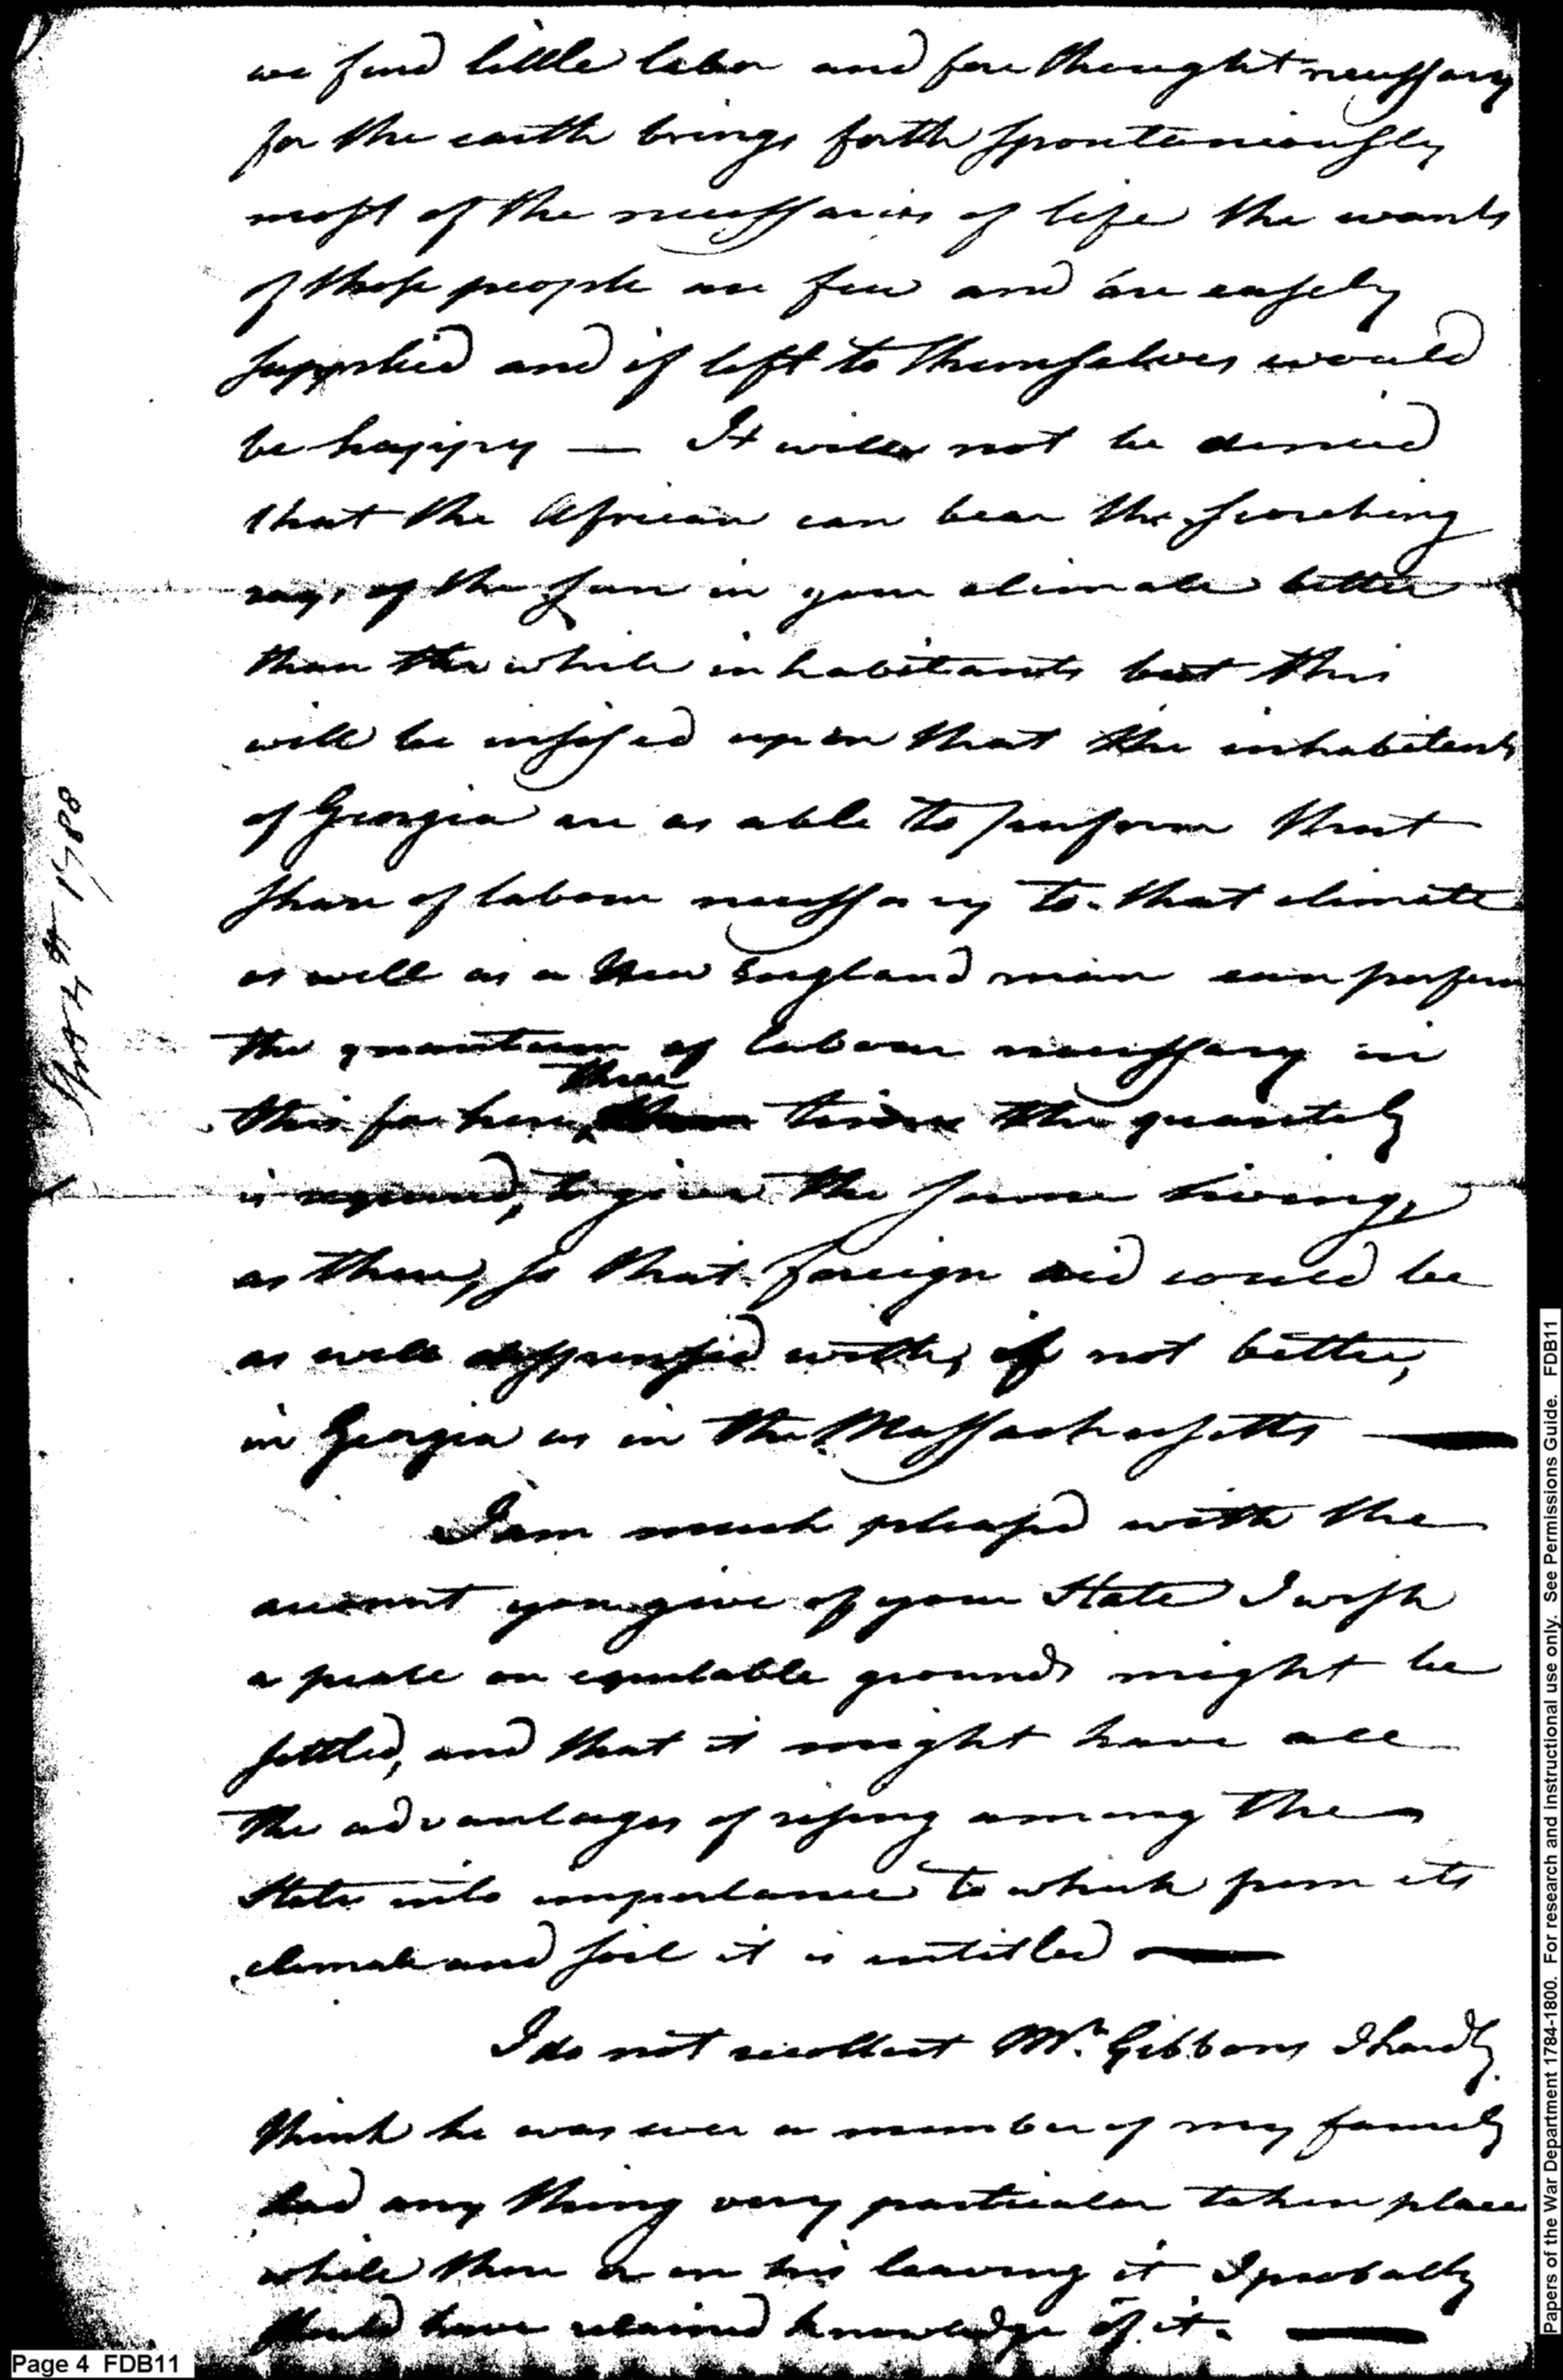 we find little labor and fore thought necessary
for the earth brings forth spontaniously
most of the necessaries of life the wants
of those people are few and are easely
supplied and if left to themselves would
be happy — It will not be denied
that the African can bear the scorching
rays of the sun in your climate better
than the white inhabitants but this
will be insised upon that the inhabitents
of Georgia are as able to perform that
share of labour necessary to that climate
as well as a New England man can perform
the quantum of labour necessary in
three
this for here, times the quantity
is required, to give the same living,
as there, so that foreign aid could be
as well dispensed with, if not better,
in Georgia as in the Massachusetts —
I am much pleased with the
account you give of your State I wish
a peace on equitable grounds might be
settled, and that it might have all
the advantages of rising among the
States into importance to which from its
climate and soil it is entitled —
I do not recollect Mr. Gibbons I hardly
think he was ever a member of my family
had any thing very particular taken place
while there or on his leaving it I probably
should have retained knowledge of it. —
1788
Page 4 FDB11
Papers of the War Department 1784-1800. For research and instructional use only. See Permissions Guide. FDB11